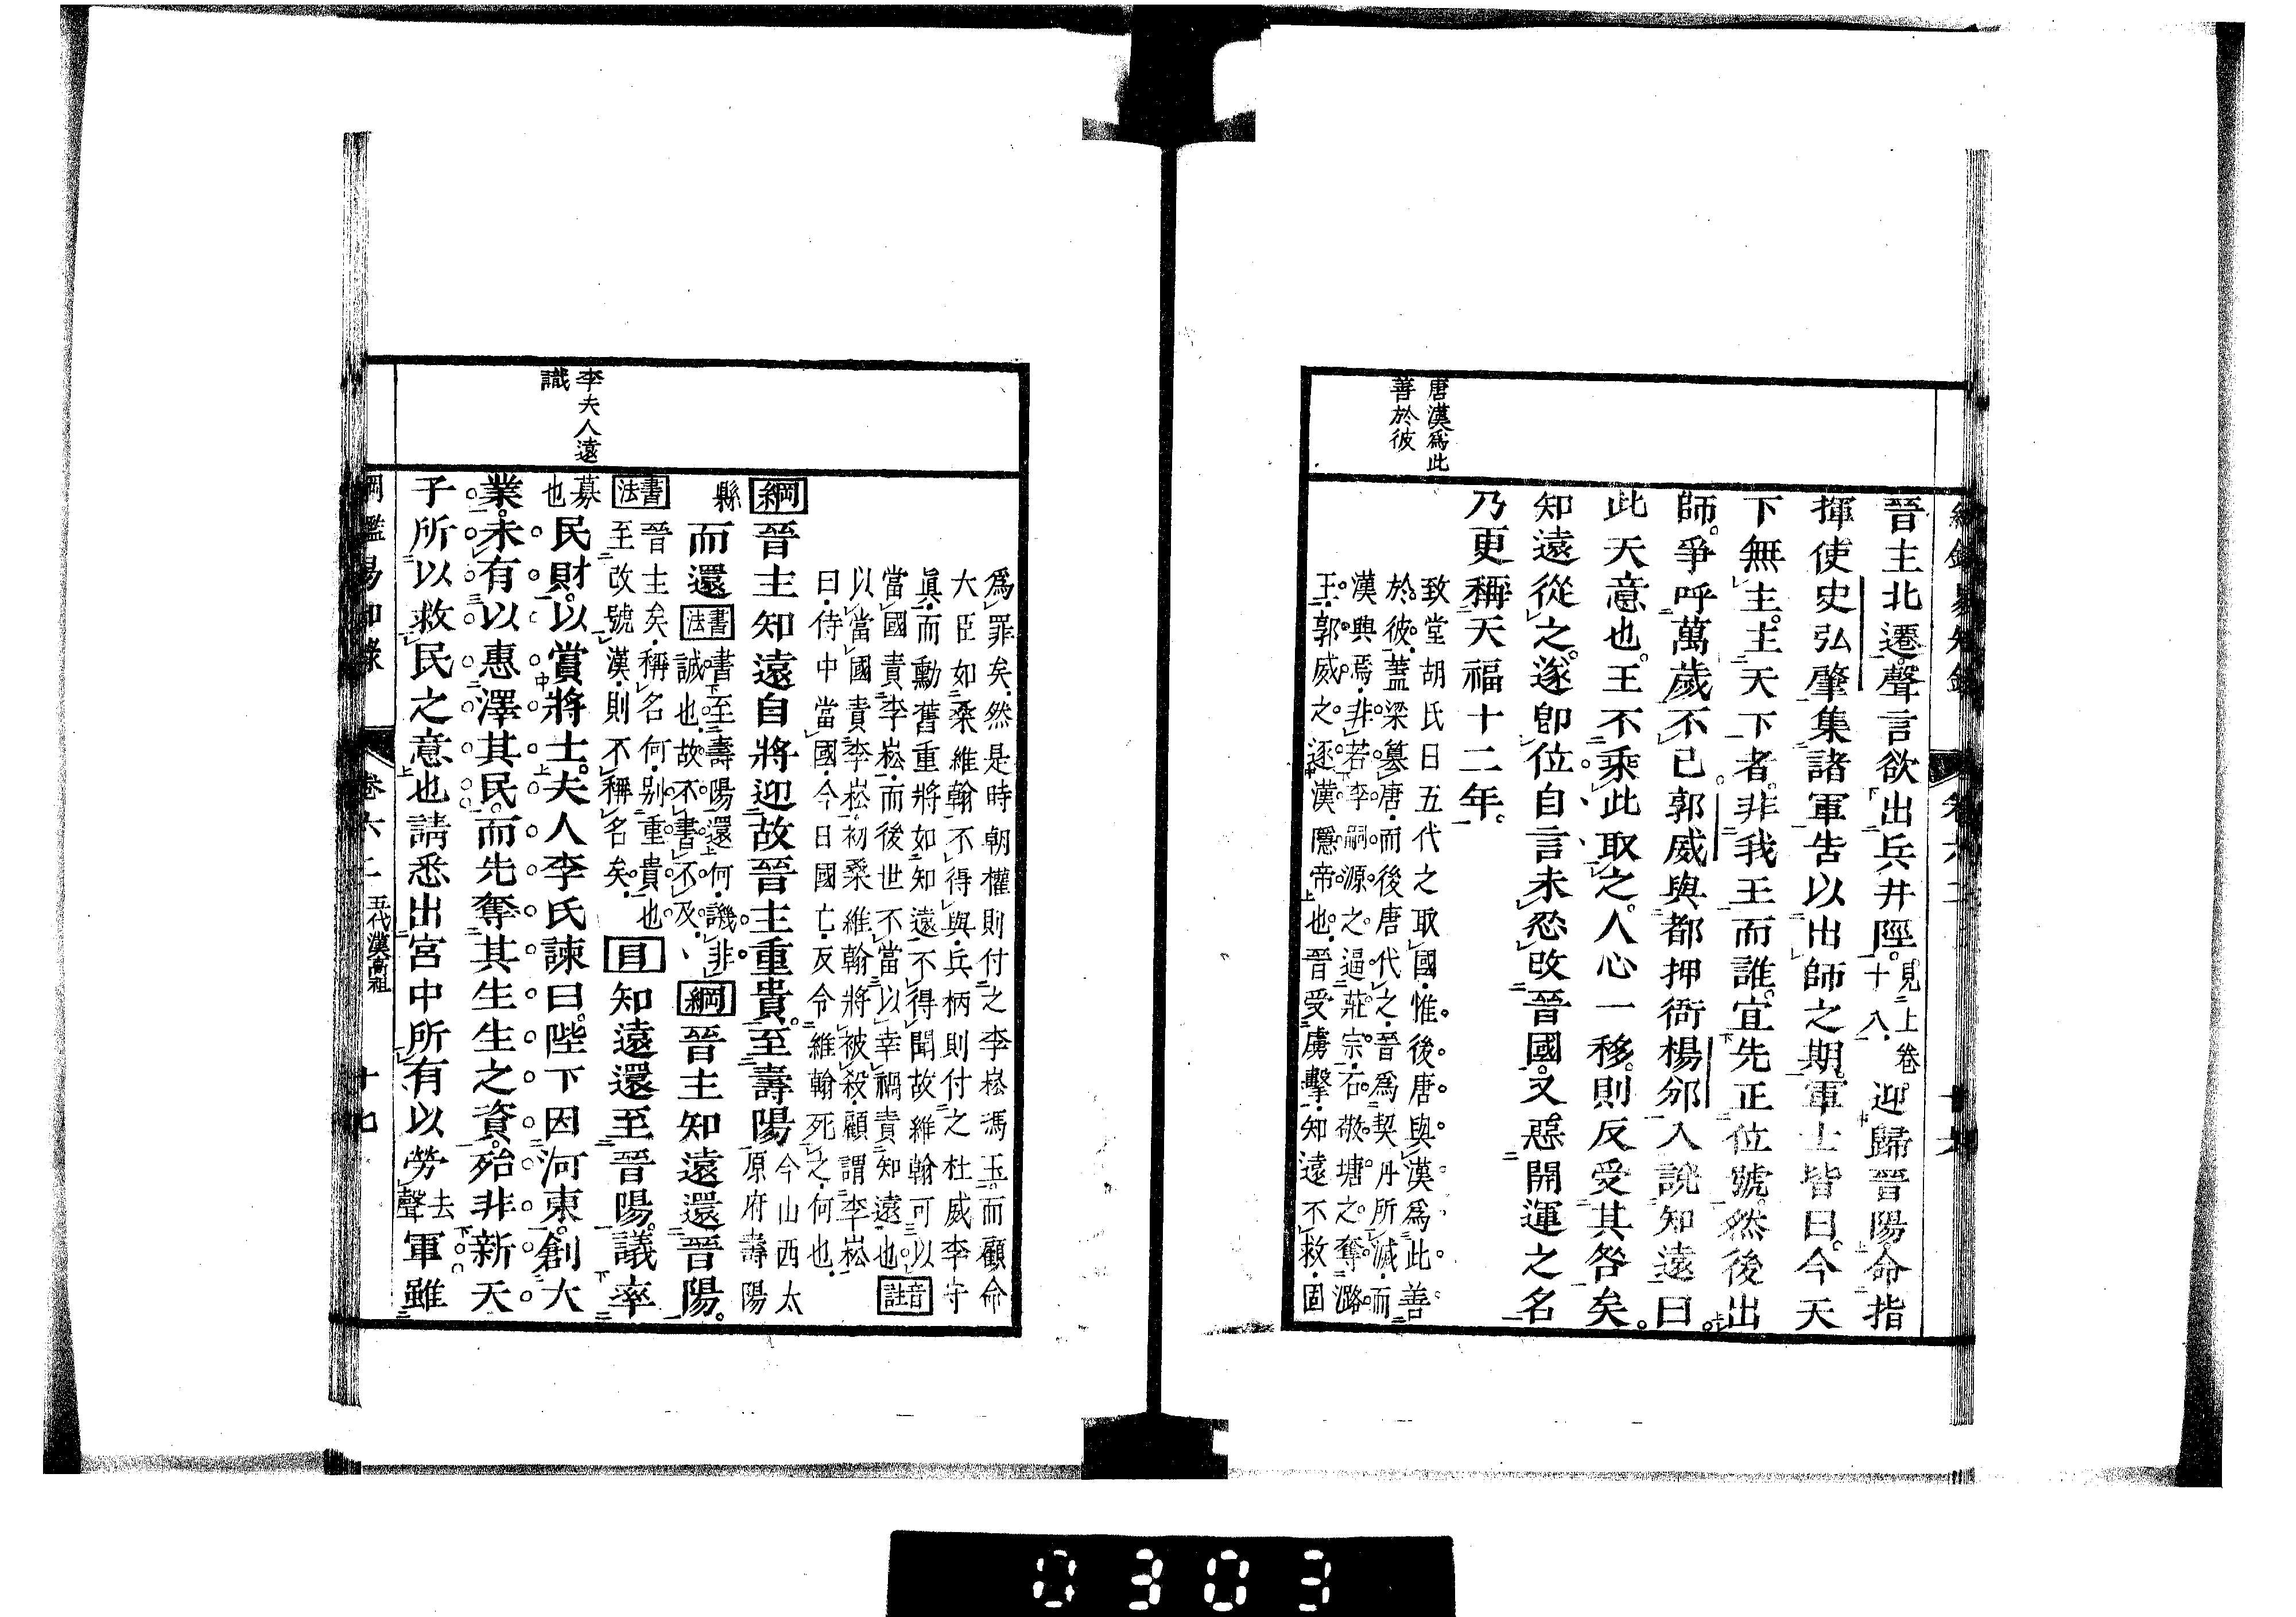 唐漢爲此
善於彼
晉主北遷聲言欲出兵井陘見上卷十八迎歸晉陽命指
揮使史弘肇集諸軍告以出師之期軍士皆曰今天
下無主主天下者非我王而誰宜先正位號然後出
師爭呼萬歲不已郭威與都押衙楊邠入說知遠曰
此天意也王不乘此取之人心一移則反受其咎矣
知遠從之遂卽位自言未忍改晉國又惡開運之名
乃更稱天福十二年
致堂胡氏曰五代之取國惟後唐與漢爲此善
於彼蓋梁篡唐而後唐代之晉爲契丹所滅而
漢興焉非若李嗣源之逼莊宗石敬塘之奪潞
王郭威之逐漢隱帝也晉受虜擊知遠不救固
爲罪矣然是時朝權則付之李崧馮玉而顧命
大臣如桑維翰不得與兵柄則付之杜威李守
眞而勳舊重將如知遠不得聞故維翰可以
當國責李崧而後世不當以幸禍責知遠也音註
以當國責李崧初桑維翰將被殺顧謂李崧
曰侍中當國今日國亡反令維翰死之何也
綱晉主知遠自將迎故晉主重貴至壽陽今山西太原府壽陽
縣而還書法書至壽陽還何譏非誠也故不書不及綱晉主知遠還晉陽
書法晉主矣稱名何別重貴也至改號漢則不稱名矣目知遠還至晉陽議率
募也民財以賞將士夫人李氏諫曰陛下因河東創大
業未有以惠澤其民而先奪其生生之資殆非新天
子所以救民之意也請悉出宮中所有以勞去聲軍雖
李夫人遠
識
卷六二 五代漢高祖
0303